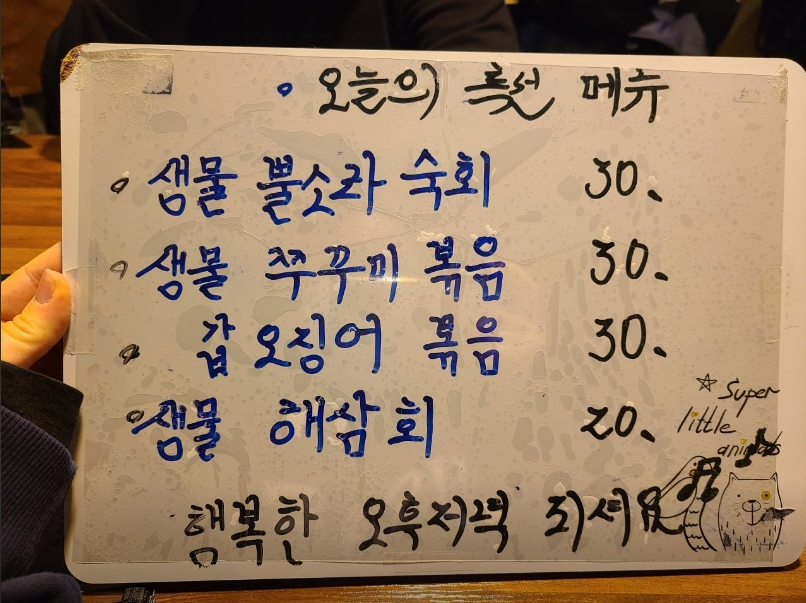 오늘의 특선 메뉴
샘물 뿔소라 숙회 30.
샘물 쭈꾸미 볶음 30.
갑오징어 볶음 30.
샘물 해삼회 20.
☆ Super
little
animals
행복한 오후저녁 되셔요